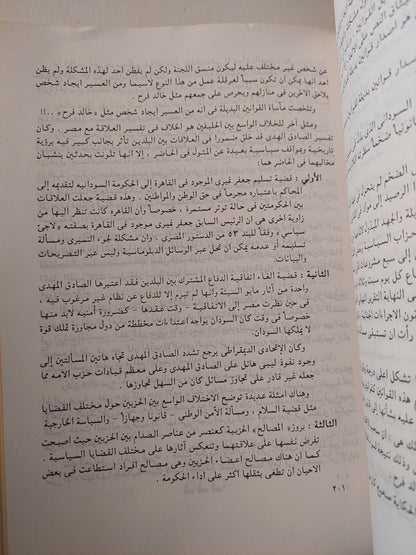 عن شخص غير مختلف عليه ليكون منسق اللجنة ولكن لم يفطن احد لهذه المشكلة ولم يظن
احد انها يمكن ان تكون سبباً لعرقلة عمل من هذا النوع لاسيما ومن العسير ايجاد شخص
يلاحق الآخرين فى منازلهم ويحرص على جمعهم مثل خالد فرح .
وتلخصت مأساة القوانين البديلة فى انه من العسير ايجاد شخص مثل «خالد فرح» ..!!
ومثل آخر للخلاف الواسع بين الحليفين هو الخلاف فى تفسير العلاقة مع مصر . وكان
تفسير الصادق المهدى قد خلق ضموراً فى العلاقات بين البلدين تأثر بجانب كبير فيه برؤية
تاريخية وبمواقف سياسية بعيدة عن المثول فى الحاضر ، إلا انها تلونت بحدثين ينشبان
مخالبهما فى الحاضر هما :
الأولى : قضية تسليم جعفر نميرى الموجود فى القاهرة إلى الحكومة السودانيه لتقديمه إلى
المحاكم باعتباره مجرماً فى حق الوطن والمواطنين . وهذه قضية جعلت العلاقات
بين الحكومتين فى حالة توتر مستمرة ، خصوصاً وان القاهرة كانت تنظر اليها من
زاوية اخرى هى ان الرئيس السابق جعفر نميرى موجود فى القاهرة بصفته «لاجئ
سياسى» وفقاً للبند ٥٣ من الدستور المصرى ، وان مشكلة لجوء النميرى ومسألة
تسليمه أو عدمه يمكن ان تحل عبر الوسائل الدبلوماسية وليس عبر التصريحات
والبيانات.
الثانية : قضية الغاء اتفاقية الدفاع المشترك بين البلدين فقد اعتبرها الصادق المهدى
من آثار مايو السيئة وأنها لم تبرم إلا للدفاع عن نظام غير مرغوب فيه ،
فى حين نظرت مصر إلى الاتفاقية – وقت عقدها – كضرورة أمنيه لابد منها
خصوصاً فى وقت كان السودان يواجه اعتداءات مخططة من دول مجاورة تملك قوة
لا يملكها السودان.
وكان الإتحادى الديمقراطى يرجع تشدد الصادق المهدى تجاه هاتين المسألتين إلى
وجود نفوذ ليبى هائل على الصادق المهدى وعلى معظم قيادات حزب الامه مما
جعله غير قادر على تجاوز مسائل كان من السهل تجاوزها .
وهناك امثلة عديدة توضح الاختلاف الواسع بين الحزبين حول مختلف القضايا
مثل قضية السلام ، ومسألة الأمن الوطنى – قانوناً وجهازاً – والسياسة الخارجية
الثالثة : بروز «المصالح» الحزبية كعنصر من عناصر الصدام بين الحزبين حيث اصبحت
تفرض نفسها على علاقتهما وتنعكس آثارها على مختلف القضايا السياسية .
كما ان هناك مصالح اعضاء الحزبين وهى مصالح أفراد استطاعت فى بعض
الاحيان ان تطغى بثقلها اكثر على اداء الحكومة .
٢٠١